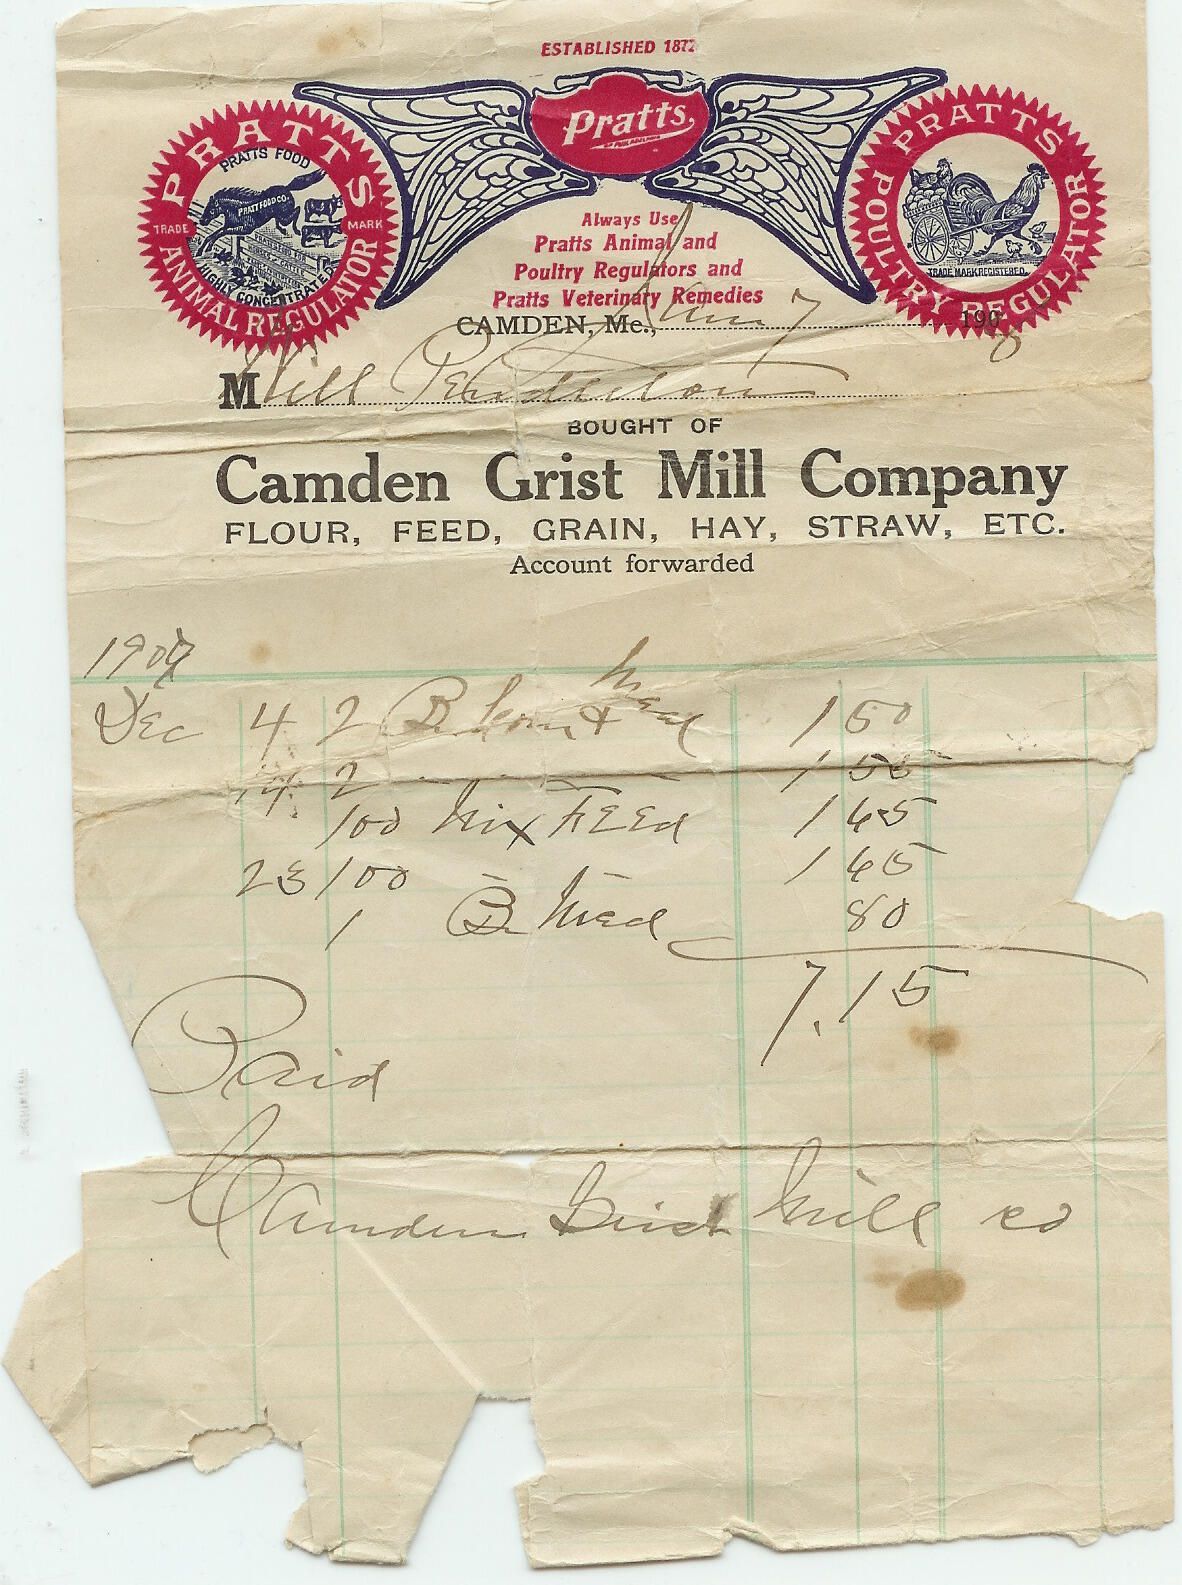 ESTABLISHED 1872
Pratts
PRATTS
PRATTS FOOD
PRATT FOOD CO.
TRADE MARK
HIGHLY CONCENTRATED
ANIMAL REGULATOR
PRATTS
POULTRY REGULATOR
TRADE MARK REGISTERED.
Always Use
Pratts Animal and
Poultry Regulators and
Pratts Veterinary Remedies
CAMDEN, Me., Jan 7 1908
M Will Pendleton
BOUGHT OF
Camden Grist Mill Company
FLOUR, FEED, GRAIN, HAY, STRAW, ETC.
Account forwarded
1907
Dec 4 2 B. Corn & Meal 1 50
14 2 " " " 1 55
100 Mix FEEd 1 65
23 100 " " 1 65
1 B. Meal 80
7.15
Paid
Camden Grist Mill Co